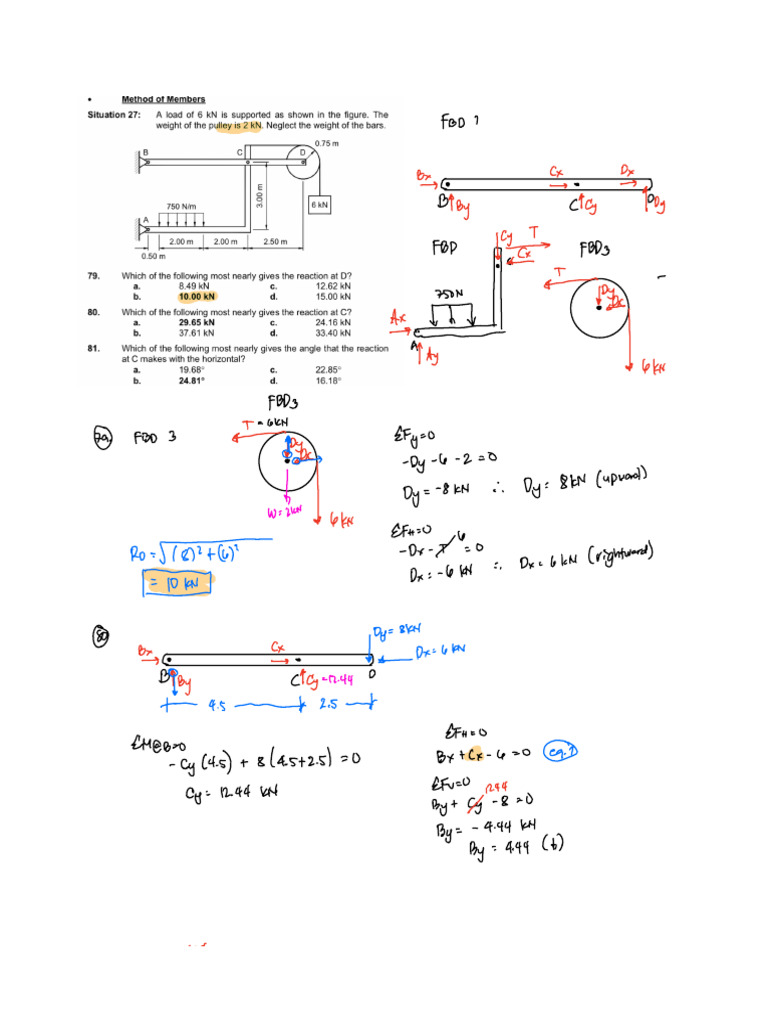 • Method of Members
Situation 27: A load of 6 kN is supported as shown in the figure. The
weight of the pulley is 2 kN. Neglect the weight of the bars.
0.75 m
B C D
3.00 m
750 N/m
6 kN
A
2.00 m 2.00 m 2.50 m
0.50 m
79. Which of the following most nearly gives the reaction at D?
a. 8.49 kN c. 12.62 kN
b. 10.00 kN d. 15.00 kN
80. Which of the following most nearly gives the reaction at C?
a. 29.65 kN c. 24.16 kN
b. 37.61 kN d. 33.40 kN
81. Which of the following most nearly gives the angle that the reaction
at C makes with the horizontal?
a. 19.68° c. 22.85°
b. 24.81° d. 16.18°
FBD 1
Bx Cx Dx
B By C Cy D Dy
FBD
Cy T
Cx
750N
Ax
A Ay
FBD3
T
Dy
Dx
6 kN
79 FBD 3
FBD3
T = 6kN
Dy
Dx
W = 2kN
6 kN
RD = √(8)² + (6)²
= 10 kN
ΣFy = 0
-Dy - 6 - 2 = 0
Dy = -8 kN ∴ Dy = 8kN (upward)
ΣFH = 0
6
-Dx - T = 0
Dx = -6 kN ∴ Dx = 6 kN (rightward)
80
Dy = 8kN
Bx Cx Dx = 6 kN
B By C Cy = 12.44 D
4.5 2.5
ΣM@B=0
-Cy (4.5) + 8 (4.5+2.5) = 0
Cy = 12.44 kN
ΣFH = 0
Bx + Cx - 6 = 0 eq. 1
ΣFV = 0
12.44
By + Cy - 8 = 0
By = -4.44 kN
By = 4.44 (b)